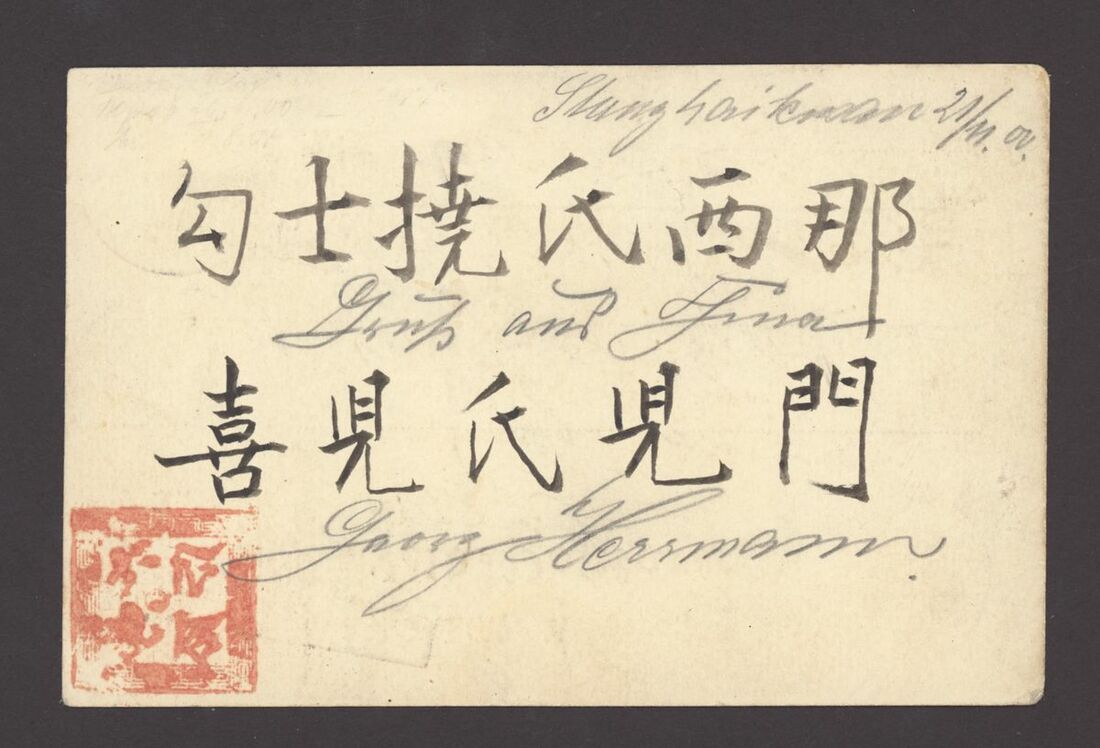 Shanghaikwan 21/11. 00.
勾士撓氏西那
Gruß aus China
喜児氏児門
Georg Herrmann.